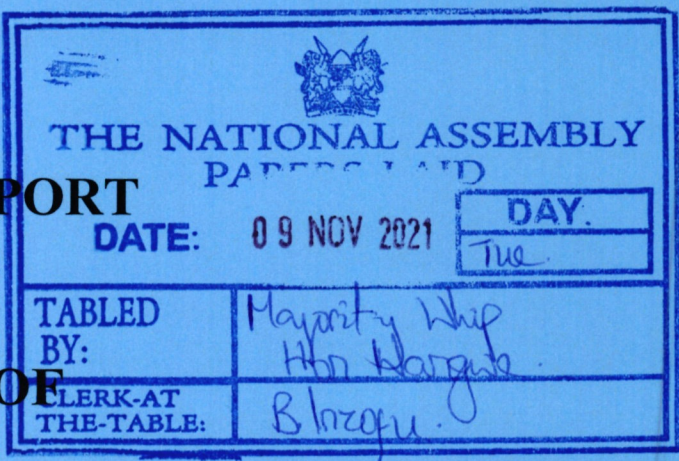 THE NATIONAL ASSEMBLY
PAPERS LAID
PORT
DATE: 09 NOV 2021
DAY.
Tue.
TABLED BY:
Majority Whip
Hon
OF
CLERK-AT THE-TABLE: